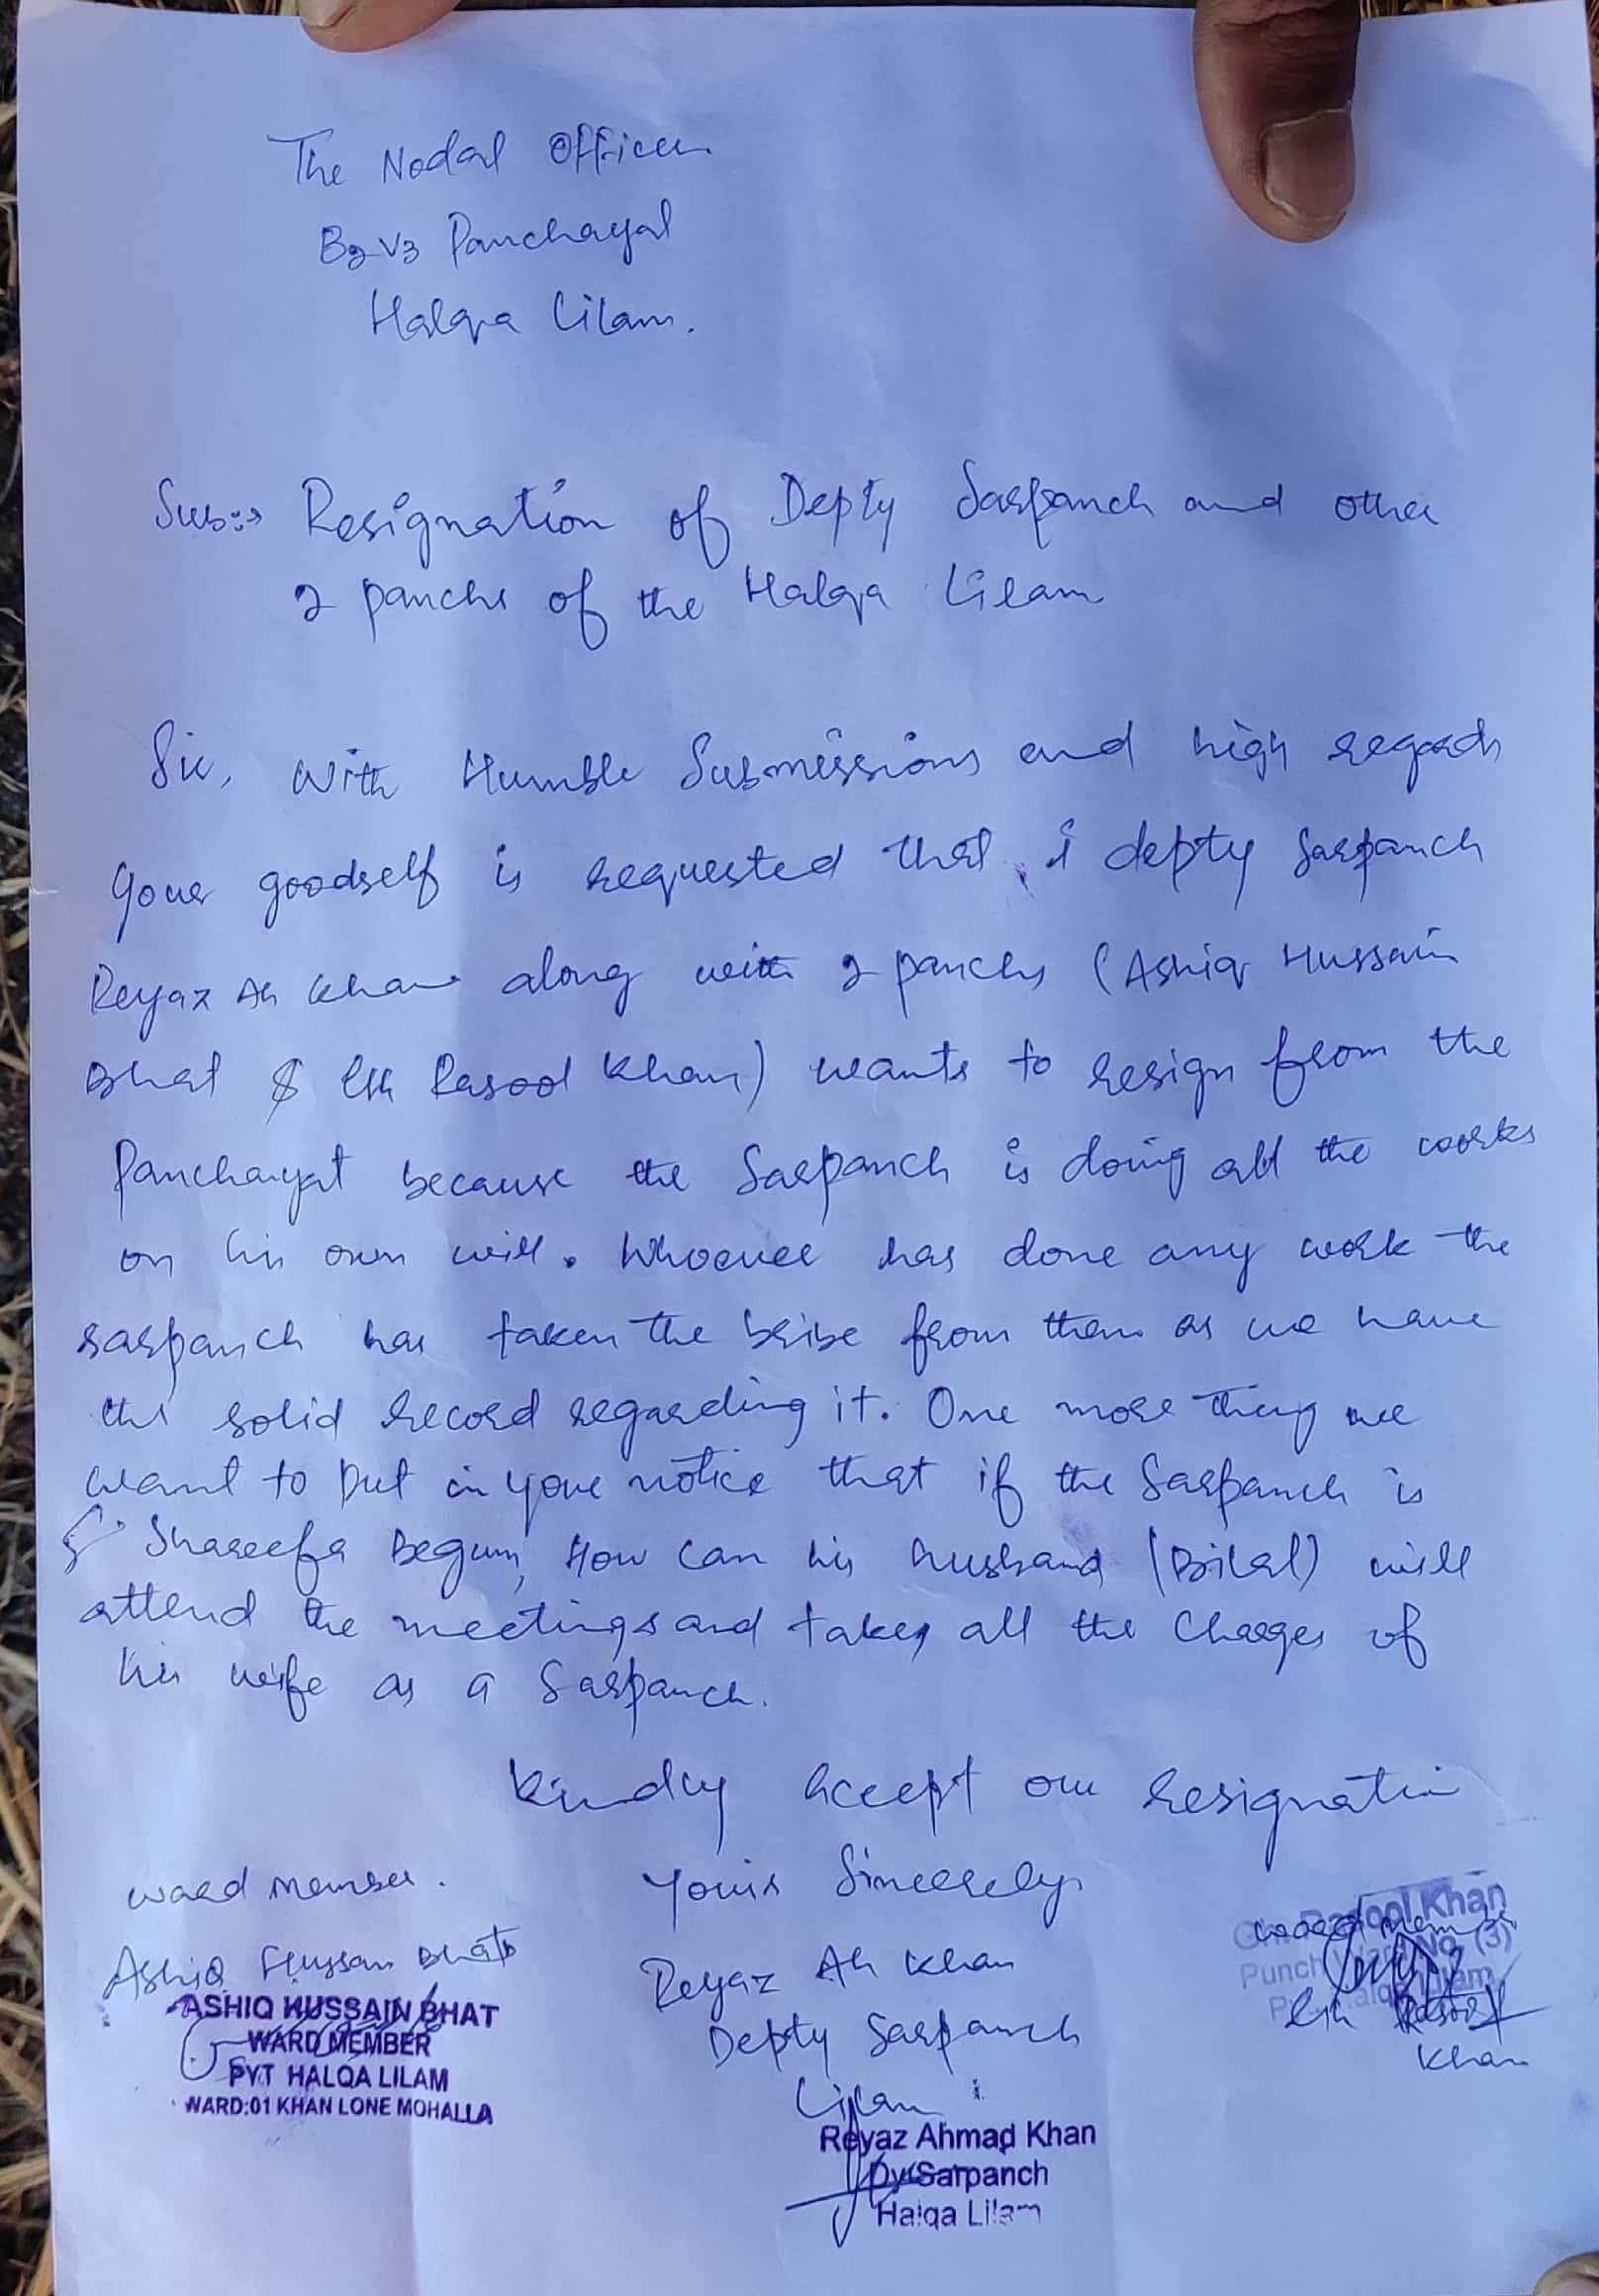 The Nodal Officer
B2V3 Panchayat
Halqa Lilam.
Sub:→ Resignation of Depty Sarpanch and other
2 panchs of the Halqa Lilam
Sir, With Humble Submissions and high regards
your goodself is requested that i depty Sarpanch
Reyaz Ah Khan along with 2 panchs (Ashiq Hussain
Bhat & Gh Rasool Khan) wants to resign from the
Panchayat because the Sarpanch is doing all the works
on his own will. Whoever has done any work the
sarpanch has taken the bribe from them as we have
the solid record regarding it. One more thing we
want to put in your notice that if the Sarpanch is
Shareefa Begum, How can his husband (Bilal) will
attend the meetings and takes all the charges of
his wife as a Sarpanch.
Kindly accept our resignation
Yours Sincerely
Ward member.
Ashiq Hussain Bhat
ASHIQ HUSSAIN BHAT
WARD MEMBER
PYT HALQA LILAM
WARD:01 KHAN LONE MOHALLA
Reyaz Ah Khan
Depty Sarpanch
Lilam
Reyaz Ahmad Khan
Dy Sarpanch
Halqa Lilam
Gh. Rasool Khan
Punch Ward No. (3)
Halqa Lilam
ward member
Gh Rasool
Khan